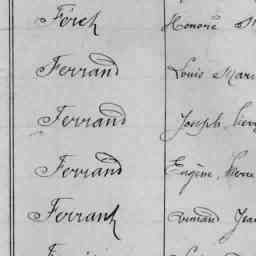 Férch Honoré
Ferrand Louis Mari
Ferrand Joseph,
Ferrand Eugène, Pierre
Ferrank Armand Jean